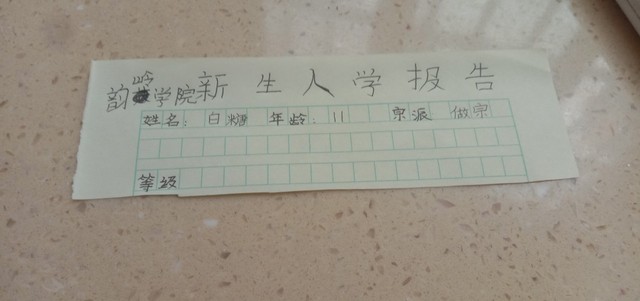 韵岭学院新生入学报告
姓名：白糖 年龄：11 宗派 做宗
等级